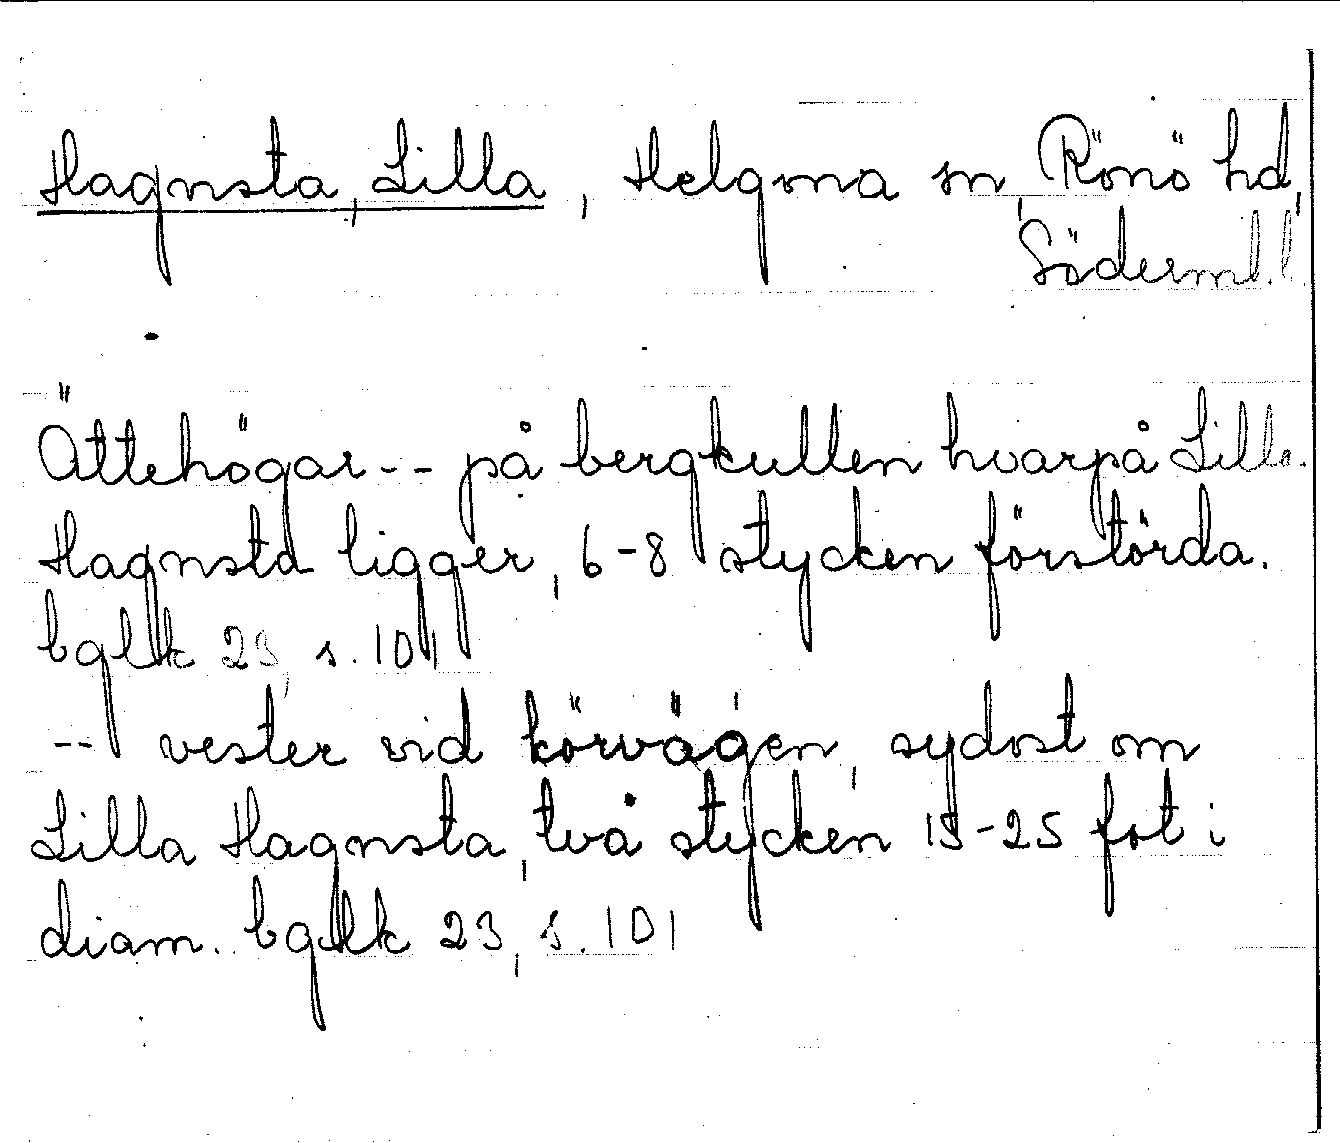 Hagnsta, Lilla, Helgona sn, Rönö hd,
Söderml.
Ättehögar -- på bergkullen hvarpå Lilla
Hagnsta ligger, 6-8 stycken förstörda.
bglk 23, s. 101
-- vester vid körvägen, sydost om
Lilla Hagnsta, två stycken 15-25 fot i
diam. bglk 23, s. 101